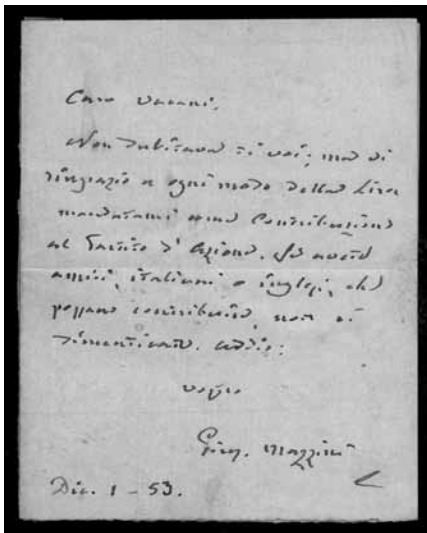 Caro Vacani,
Non dubitava di voi; ma vi
ringrazio a ogni modo della Lira
mandatami come Contribuzione
al Partito d'Azione. Se avete
amici, italiani o inglesi, che
possano contribuire, non vi
dimenticate. addio:
vostro
Gius. Mazzini
Dic. 1 - 53.